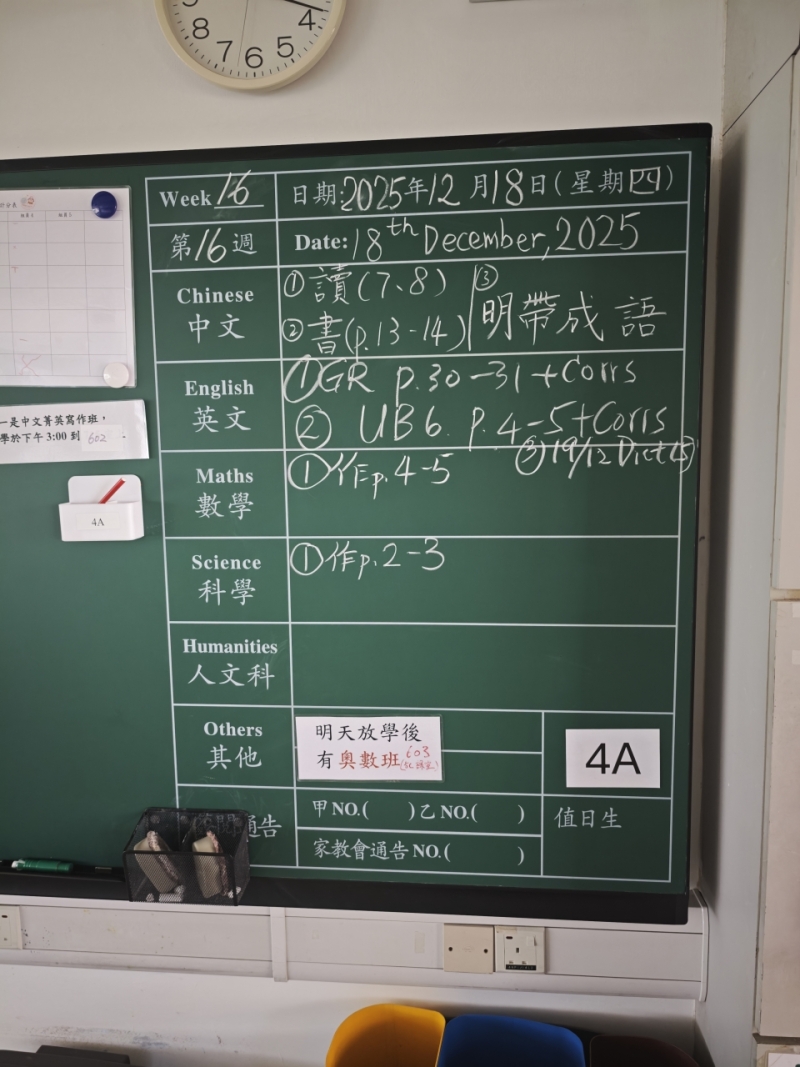 4
8
7
6
5
Week 16
日期:2025年12月18日(星期四)
第16週
Date: 18th December, 2025
Chinese
中文
①讀(7、8)
②書(p.13-14)
③明帶成語
English
英文
①GR p.30-31+Corrs
②UB6. p.4-5+Corrs
③19/12 Dict
Maths
數學
①作p.4-5
Science
科學
①作p.2-3
Humanities
人文科
Others
其他
明天放學後
有奧數班 603
4A
通告
甲NO.( )乙NO.( )
家教會通告NO.( )
值日生
一是中文菁英寫作班,
學於下午3:00到 602 .
4A